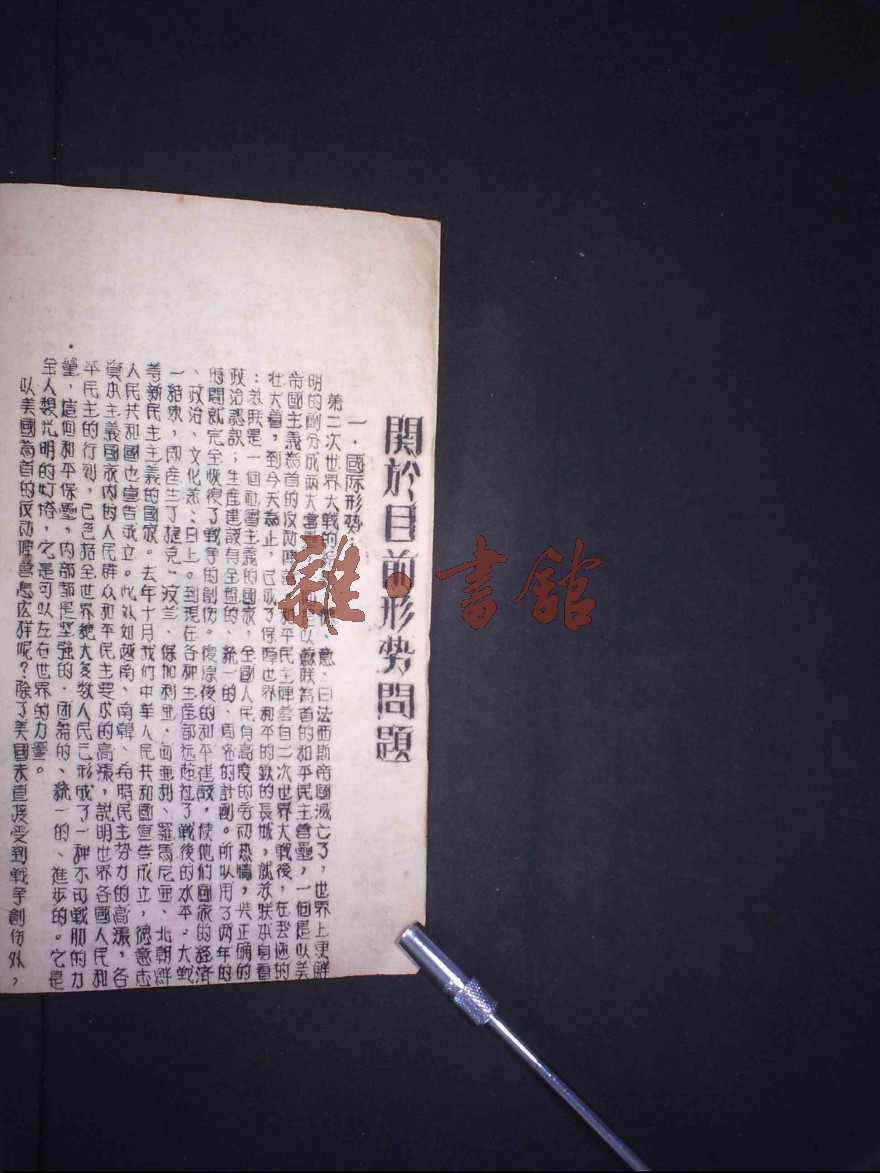 關於目前形势問題
一．國际形势：
第二次世界大戰的 意、日法西斯帝國滅亡了，世界上更鮮
明的劃分成兩大營壘 是以蘇联為首的和平民主營壘，一個是以美
帝國主義為首的反动 和平民主陣營自二次世界大戰後，在迅速的
壮大着，到今天為止，已成了保障世界和平的鉄的長城，就苏联本身看
：苏联是一個社會主義的國家，全國人民有高度的劳动热情，共正确的
政治認識；生產建設有全盤的、統一的、周密的計劃。所以用了两年的
時間就完全恢復了戰争的創伤。復原後的和平建設，使他们國家的経済
、政治、文化蒸々日上。到現在各种生産部远超过了戰後的水平。大戰
一結束，即産生了捷克、波兰、保加利亚、匈亚利、羅馬尼亚、北朝鲜
等新民主主義的國家。去年十月我们中華人民共和國宣告成立，德意志
人民共和國也宣告成立。此外如越南、南韓、希腊民主势力的高漲，各
資本主義國家内的人民群众和平民主要求的高漲，説明世界各國人民和
平民主的行列，已包括全世界絶大多数人民已形成了一种不可戰勝的力
量，這個和平保壘，内部都是坚強的、团結的、統一的、進步的。它是
全人類光明的灯塔，它是可以左右世界的力量。
以美國為首的反动陣营怎広样呢？除了美國未直接受到戰争創伤外，
雜·書館